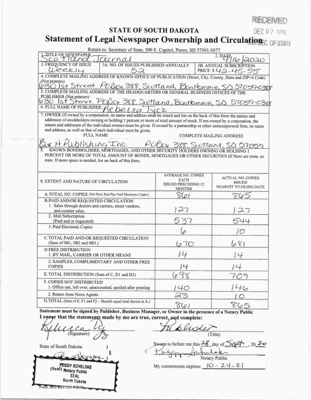 RECEIVED
STATE OF SOUTH DAKOTA
Statement of Legal Newspaper Ownership and Circulation
Return to: Secretary of State, 500 E. Capitol, Pierre, SD 57501-5077
1. TITLE OF NEWSPAPER
Scotland Journal
2. DATE
9/16/2020
3. FREQUENCY OF ISSUE
Weekly
3A. NO. OF ISSUES PUBLISHED ANNUALLY
52
3B. ANNUAL SUBSCRIPTION
PRICE $
4. COMPLETE MAILING ADDRESS OF KNOWN OFFICE OF PUBLICATION (Street, City, County, State and ZIP+4 Code)
(Not printers)
630 1st Street, PoBox 388, Scotland, Bon Homme, SD 57059-0388
5. COMPLETE MAILING ADDRESS OF THE HEADQUARTERS OR GENERAL BUSINESS OFFICES OF THE
PUBLISHER (Not printers)
630 1st Street, PoBox 388, Scotland, Bon Homme, SD 57059-0388
6. FULL NAME OF PUBLISHER:
Rebecca Tycz
7. OWNER (If owned by a corporation, its name and address must be stated and list on the back of this form the names and
addresses of stockholders owning or holding 1 percent or more of total amount of stock. If not owned by a corporation, the
names and addresses of the individual owners must be given. If owned by a partnership or other unincorporated firm, its name
and address, as well as that of each individual must be given.
FULL NAME
COMPLETE MAILING ADDRESS
Publishing Inc.
PoBox 388, Scotland, SD 57059
8. KNOWN BONDHOLDERS, MORTGAGEES, AND OTHER SECURITY HOLDERS OWNING OR HOLDING 1
PERCENT OR MORE OF TOTAL AMOUNT OF BONDS, MORTGAGES OR OTHER SECURITIES (If there are none, so
state. If more space is needed, list on back of this form.
9. EXTENT AND NATURE OF CIRCULATION
AVERAGE NO. COPIES
EACH
ISSUED PRECEDING 12
MONTHS
ACTUAL NO. COPIES
ISSUED
NEAREST TO FILING DATE
A. TOTAL NO. COPIES
861
865
B. PAID AND/OR REQUESTED CIRCULATION
1. Sales through dealers and carriers, street vendors,
and counter sales.
127
127
2. Mail Subscription
(Paid and or requested)
537
544
3. Paid Electronic Copies
6
10
C. TOTAL PAID AND/OR REQUESTED CIRCULATION
(Sum of 9B1, 9B2 and 9B3.)
670
681
D. FREE DISTRIBUTION
1. BY MAIL, CARRIER OR OTHER MEANS
14
14
2. SAMPLES, COMPLIMENTARY AND OTHER FREE
COPIES
14
14
E. TOTAL DISTRIBUTION (Sum of C, D1 and D2)
698
709
F. COPIES NOT DISTRIBUTED
1. Office use, left over, unaccounted, spoiled after printing
140
146
2. Return from News Agents
23
10
G. TOTAL (Sum of E, F1 and F2 - Should equal total shown in A)
861
865
Statement must be signed by Publisher, Business Manager, or Owner in the presence of a Notary Public
I swear that the statements made by me are true, correct, and complete:
(Signature)
Publisher
(Title)
State of South Dakota )
Sworn to before me this 28 day of Sept 2020
Peggy Schelske
Notary Public
My commission expires: 10-24-21
PEGGY SCHELSKE
Notary Public
SEAL
South Dakota